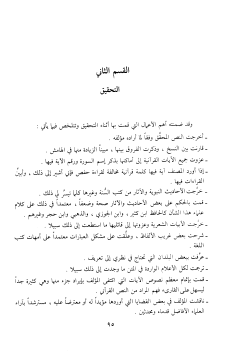 القسم الثاني
التحقيق
وقد ضمنته أهم الأعمال التي قمت بها أثناء التحقيق وتتلخص فيما يأتي :
ـ أخرجت النص المحقق وفقاً لما أراده مؤلفه .
ـ قارنت بين النسخ ، وذكرت الفروق بينها ، مبيناً الزيادة منها في الهامش .
ـ عزوت جميع الآيات القرآنية إلى أماكنها بذكر إسم السورة ورقم الآية فيها .
ـ إذا أورد المصنف آية فيها كلمة قرآنية مخالفة لقراءة حفص فإني أشير إلى ذلك ، وأبين
القراءات فيها .
ـ خرّجت الأحاديث النبوية والآثار من كتب السنّة وغيرها كلما تيسر لي ذلك .
ـ قمت بالحكم على بعض الأحاديث والآثار صحة وضعفاً ، معتمداً في ذلك على كلام
علماء هذا الشأن كالحافظ ابن كثير ، وابن الجوزي ، والذهبي وابن حجر وغيرهم .
ـ خرّجت الأبيات الشعرية وعزوتها إلى قائليها ما استطعت إلى ذلك سبيلا .
ـ شرحت بعض غريب الألفاظ ، وعلّقت على مشكل العبارات معتمداً على أمهات كتب
اللغة .
ـ عرّفت ببعض البلدان التي تحتاج في نظري إلى تعريف .
ـ ترجمت لكل الأعلام الواردة في المتن ما وجدت إلى ذلك سبيلا .
ـ قمت بإتمام معظم نصوص الآيات التي اكتفى المؤلف بإيراد جزء منها وهي كثيرة جداً
ليسهل على القارىء فهم المراد من النص القرآني .
ـ ناقشت المؤلف في بعض القضايا التي أوردها مؤيداً له أو معترضاً عليه ، مسترشداً بآراء
العلماء الأفاضل قدماء ومحدثين .
٩٥